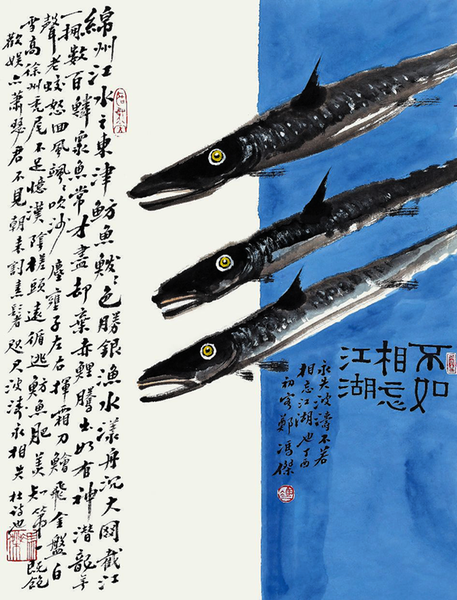 不如
相忘
江湖
永失波濤不若
相忘江湖也丁酉
初客鄭馮傑
綿州江水之東津魴魚鱍〻色勝銀漁水漾舟沉大网截江
一擁數百鱗眾魚常才盡却棄赤鯉騰出如有神潛龍无
聲老蛟怒回風颯〻吹沙塵饔子左右揮霜刀鱠飛金盤白
雪高徐州禿尾不足憶漢陰槎頭遠循逃魴魚肥美知第一既飽
歡娛亦蕭瑟君不見朝來割素鬐咫尺波濤永相失杜詩也